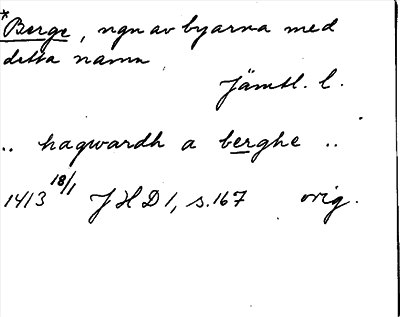 *Berge, ngn av byarna med
detta namn
Jämtl. l.
.. hagwardh a berghe ..
1413 18/1 JHD 1, s. 167 orig.